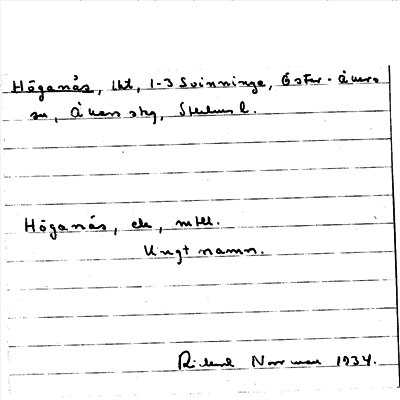 Höganäs, lht, 1-3 Svinninge, Öster-Åkers
sn, Åkers skg, Sthlms l.
Höganäs, ck, mtl.
Ungt namn.
Rikard Norrman 1934.